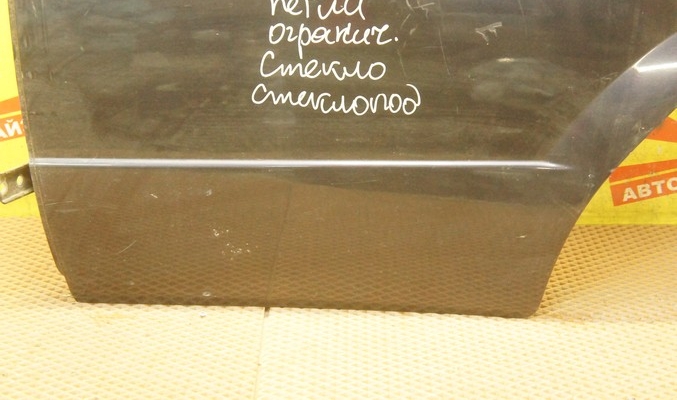 петли
огранич.
Стекло
стеклопод
АЙ
АВТО